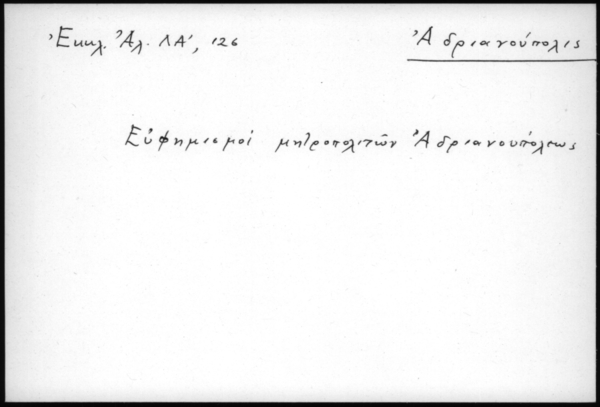 Ἐκκλ. Ἀλ. ΛΑ', 126
Ἀδριανούπολις
Εὐφημισμοί μητροπολιτῶν Ἀδριανουπόλεως